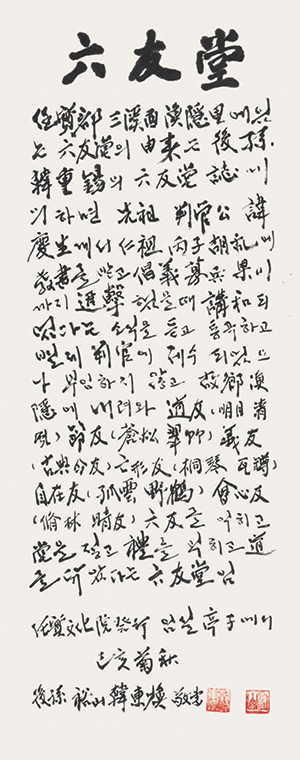 六友堂
任實郡 三溪面 漁隱里에 있
는 六友堂의 由來는 後孫
韓重錫의 六友堂 誌에
의하면 先祖 判官公 諱
慶生에서 仁祖 丙子胡亂에
敎書를 받고 倡義募兵 果川
까지 進擊 했을때 講和되
었다는 소식을 듣고 통곡하고
判官에 제수 되었으
나 부임하지 않고 故鄕 漁
隱에 내려와 道友(明月 淸
風) 節友(蒼松 翠竹) 義友
(古典 印友) 忘形友(桐琴 瓦樽)
自在友(孤雲 野鶴) 會心友
(脩林 晴友) 六友를 익히고
堂을 짓고 禮를 익히고 道
를 六友堂임
任實文化院 發行 임실 亭子에서
己亥 菊秋
後孫 裕山 韓東煥 敬書